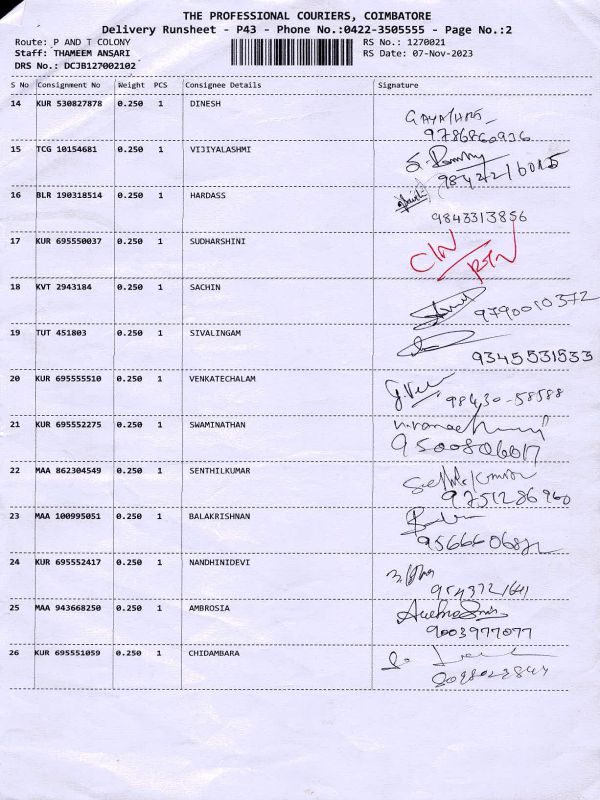 THE PROFESSIONAL COURIERS, COIMBATORE
Delivery Runsheet - P43 - Phone No.:0422-3505555 - Page No.:2
Route: P AND T COLONY RS No.: 1270021
Staff: THAMEEM ANSARI RS Date: 07-Nov-2023
DRS No.: DCJB127002102
S No Consignment No Weight PCS Consignee Details Signature
14 KUR 530827878 0.250 1 DINESH
9786860936
15 TCG 10154681 0.250 1 VIJIYALASHMI
16 BLR 190318514 0.250 1 HARDASS
9843313856
17 KUR 695550037 0.250 1 SUDHARSHINI
18 KVT 2943184 0.250 1 SACHIN
9790010372
19 TUT 451803 0.250 1 SIVALINGAM
9345531533
20 KUR 695555510 0.250 1 VENKATECHALAM
98430-58588
21 KUR 695552275 0.250 1 SWAMINATHAN
9500806017
22 MAA 862304549 0.250 1 SENTHILKUMAR
9751286960
23 MAA 100995051 0.250 1 BALAKRISHNAN
24 KUR 695552417 0.250 1 NANDHINIDEVI
25 MAA 943668250 0.250 1 AMBROSIA
9003977077
26 KUR 695551059 0.250 1 CHIDAMBARA